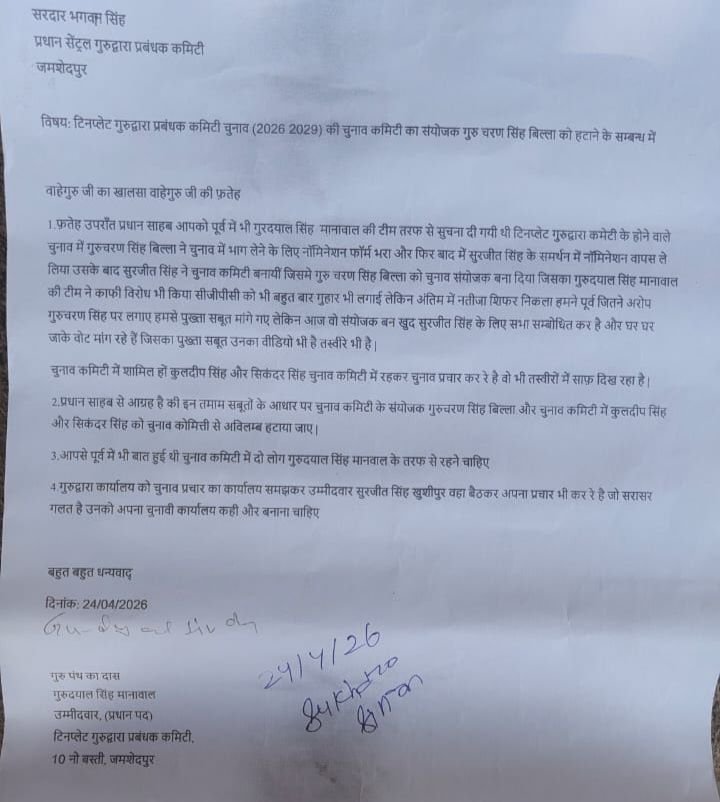 सरदार भगवान सिंह
प्रधान सेंट्रल गुरुद्वारा प्रबंधक कमिटी
जमशेदपुर
विषय: टिनप्लेट गुरुद्वारा प्रबंधक कमिटी चुनाव (2026 2029) की चुनाव कमिटी का संयोजक गुरु चरण सिंह बिल्ला को हटाने के सम्बन्ध में
वाहेगुरु जी का खालसा वाहेगुरु जी की फ़तेह
1.फ़तेह उपराँत प्रधान साहब आपको पूर्व में भी गुरदयाल सिंह मानावाल की टीम तरफ से सुचना दी गयी थी टिनप्लेट गुरुद्वारा कमेटी के होने वाले
चुनाव में गुरुचरण सिंह बिल्ला ने चुनाव में भाग लेने के लिए नॉमिनेशन फॉर्म भरा और फिर बाद में सुरजीत सिंह के समर्थन में नॉमिनेशन वापस ले
लिया उसके बाद सुरजीत सिंह ने चुनाव कमिटी बनायीं जिसमे गुरु चरण सिंह बिल्ला को चुनाव संयोजक बना दिया जिसका गुरुदयाल सिंह मानावाल
की टीम ने काफी विरोध भी किया सीजीपीसी को भी बहुत बार गुहार भी लगाई लेकिन अंतिम में नतीजा शिफर निकला हमने पूर्व जितने अरोप
गुरुचरण सिंह पर लगाए हमसे पुख्ता सबूत मांगे गए लेकिन आज वो संयोजक बन खुद सुरजीत सिंह के लिए सभा सम्बोधित कर है और घर घर
जाके वोट मांग रहे हैं जिसका पुख्ता सबूत उनका वीडियो भी है तस्वीरे भी है|
चुनाव कमिटी में शामिल हों कुलदीप सिंह और सिकंदर सिंह चुनाव कमिटी में रहकर चुनाव प्रचार कर रे है वो भी तस्वीरों में साफ़ दिख रहा है|
2.प्रधान साहब से आग्रह है की इन तमाम सबूतों के आधार पर चुनाव कमिटी के संयोजक गुरुचरण सिंह बिल्ला और चुनाव कमिटी में कुलदीप सिंह
और सिकंदर सिंह को चुनाव कोमित्ती से अविलम्ब हटाया जाए|
3.आपसे पूर्व में भी बात हुई थी चुनाव कमिटी में दो लोग गुरुदयाल सिंह मानवाल के तरफ से रहने चाहिए
4.गुरुद्वारा कार्यालय को चुनाव प्रचार का कार्यालय समझकर उम्मीदवार सुरजीत सिंह खुशीपुर वहा बैठकर अपना प्रचार भी कर रे है जो सरासर
गलत है उनको अपना चुनावी कार्यालय कही और बनाना चाहिए
बहुत बहुत धन्यवाद्
दिनांक: 24/04/2026
24/4/26
गुरु पंथ का दास
गुरुदयाल सिंह मानावाल
उम्मीदवार, (प्रधान पद)
टिनप्लेट गुरुद्वारा प्रबंधक कमिटी,
10 नो बस्ती, जमशेदपुर